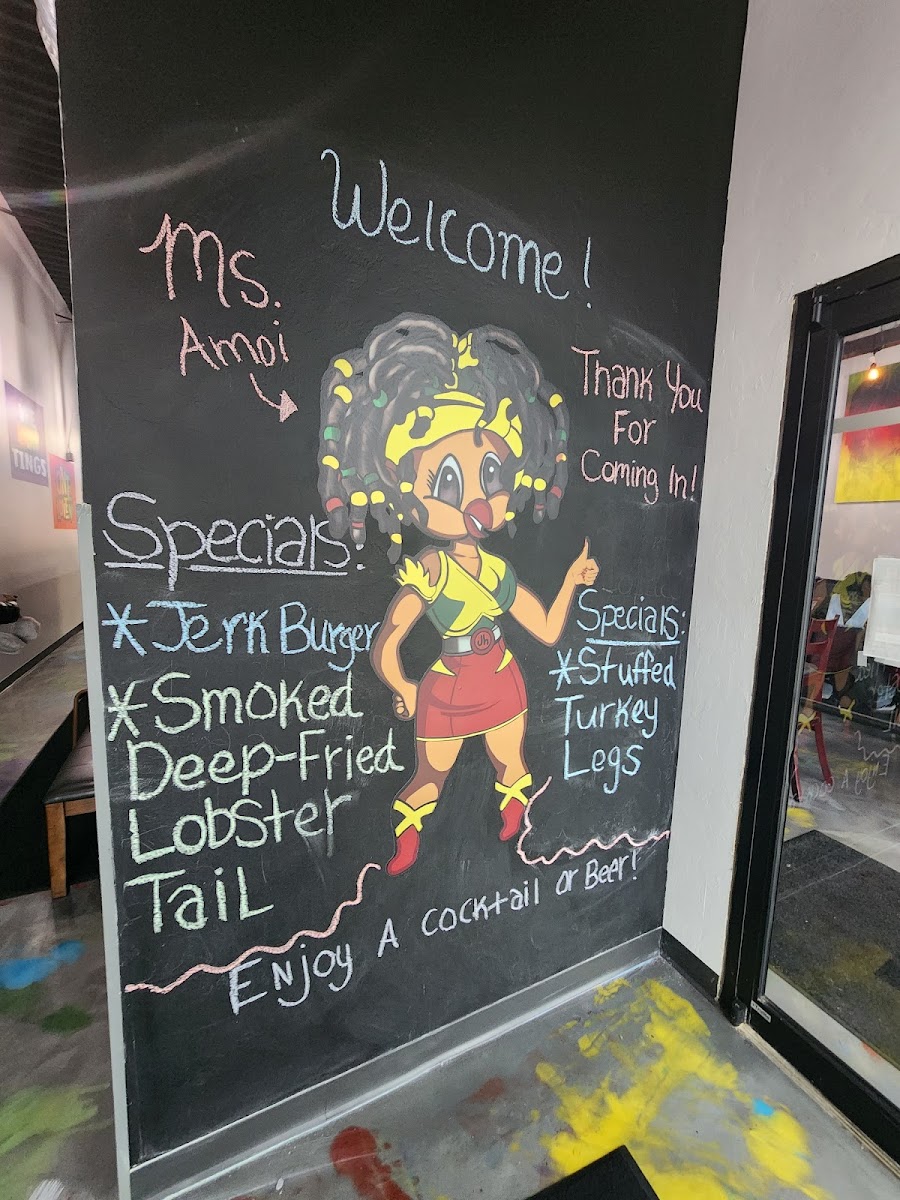 Welcome!
Ms.
Amoi
Thank You
For
Coming In!
Specials:
*Jerk Burger
*Smoked
Deep-Fried
Lobster
Tail
Specials:
*Stuffed
Turkey
Legs
Enjoy A cocktail or Beer!
Jh
TINGS